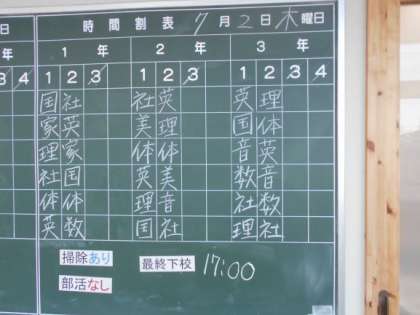 日 時間割表 7月2日木曜日
年 1年 2年 3年
3 4 1 2 3 1 2 3 1 2 3 4
国 社 社 英 英 理
家 英 美 理 国 体
理 家 体 体 音 英
社 国 英 美 数 音
体 体 理 音 社 数
英 数 国 社 理 社
掃除あり 最終下校 17:00
部活なし